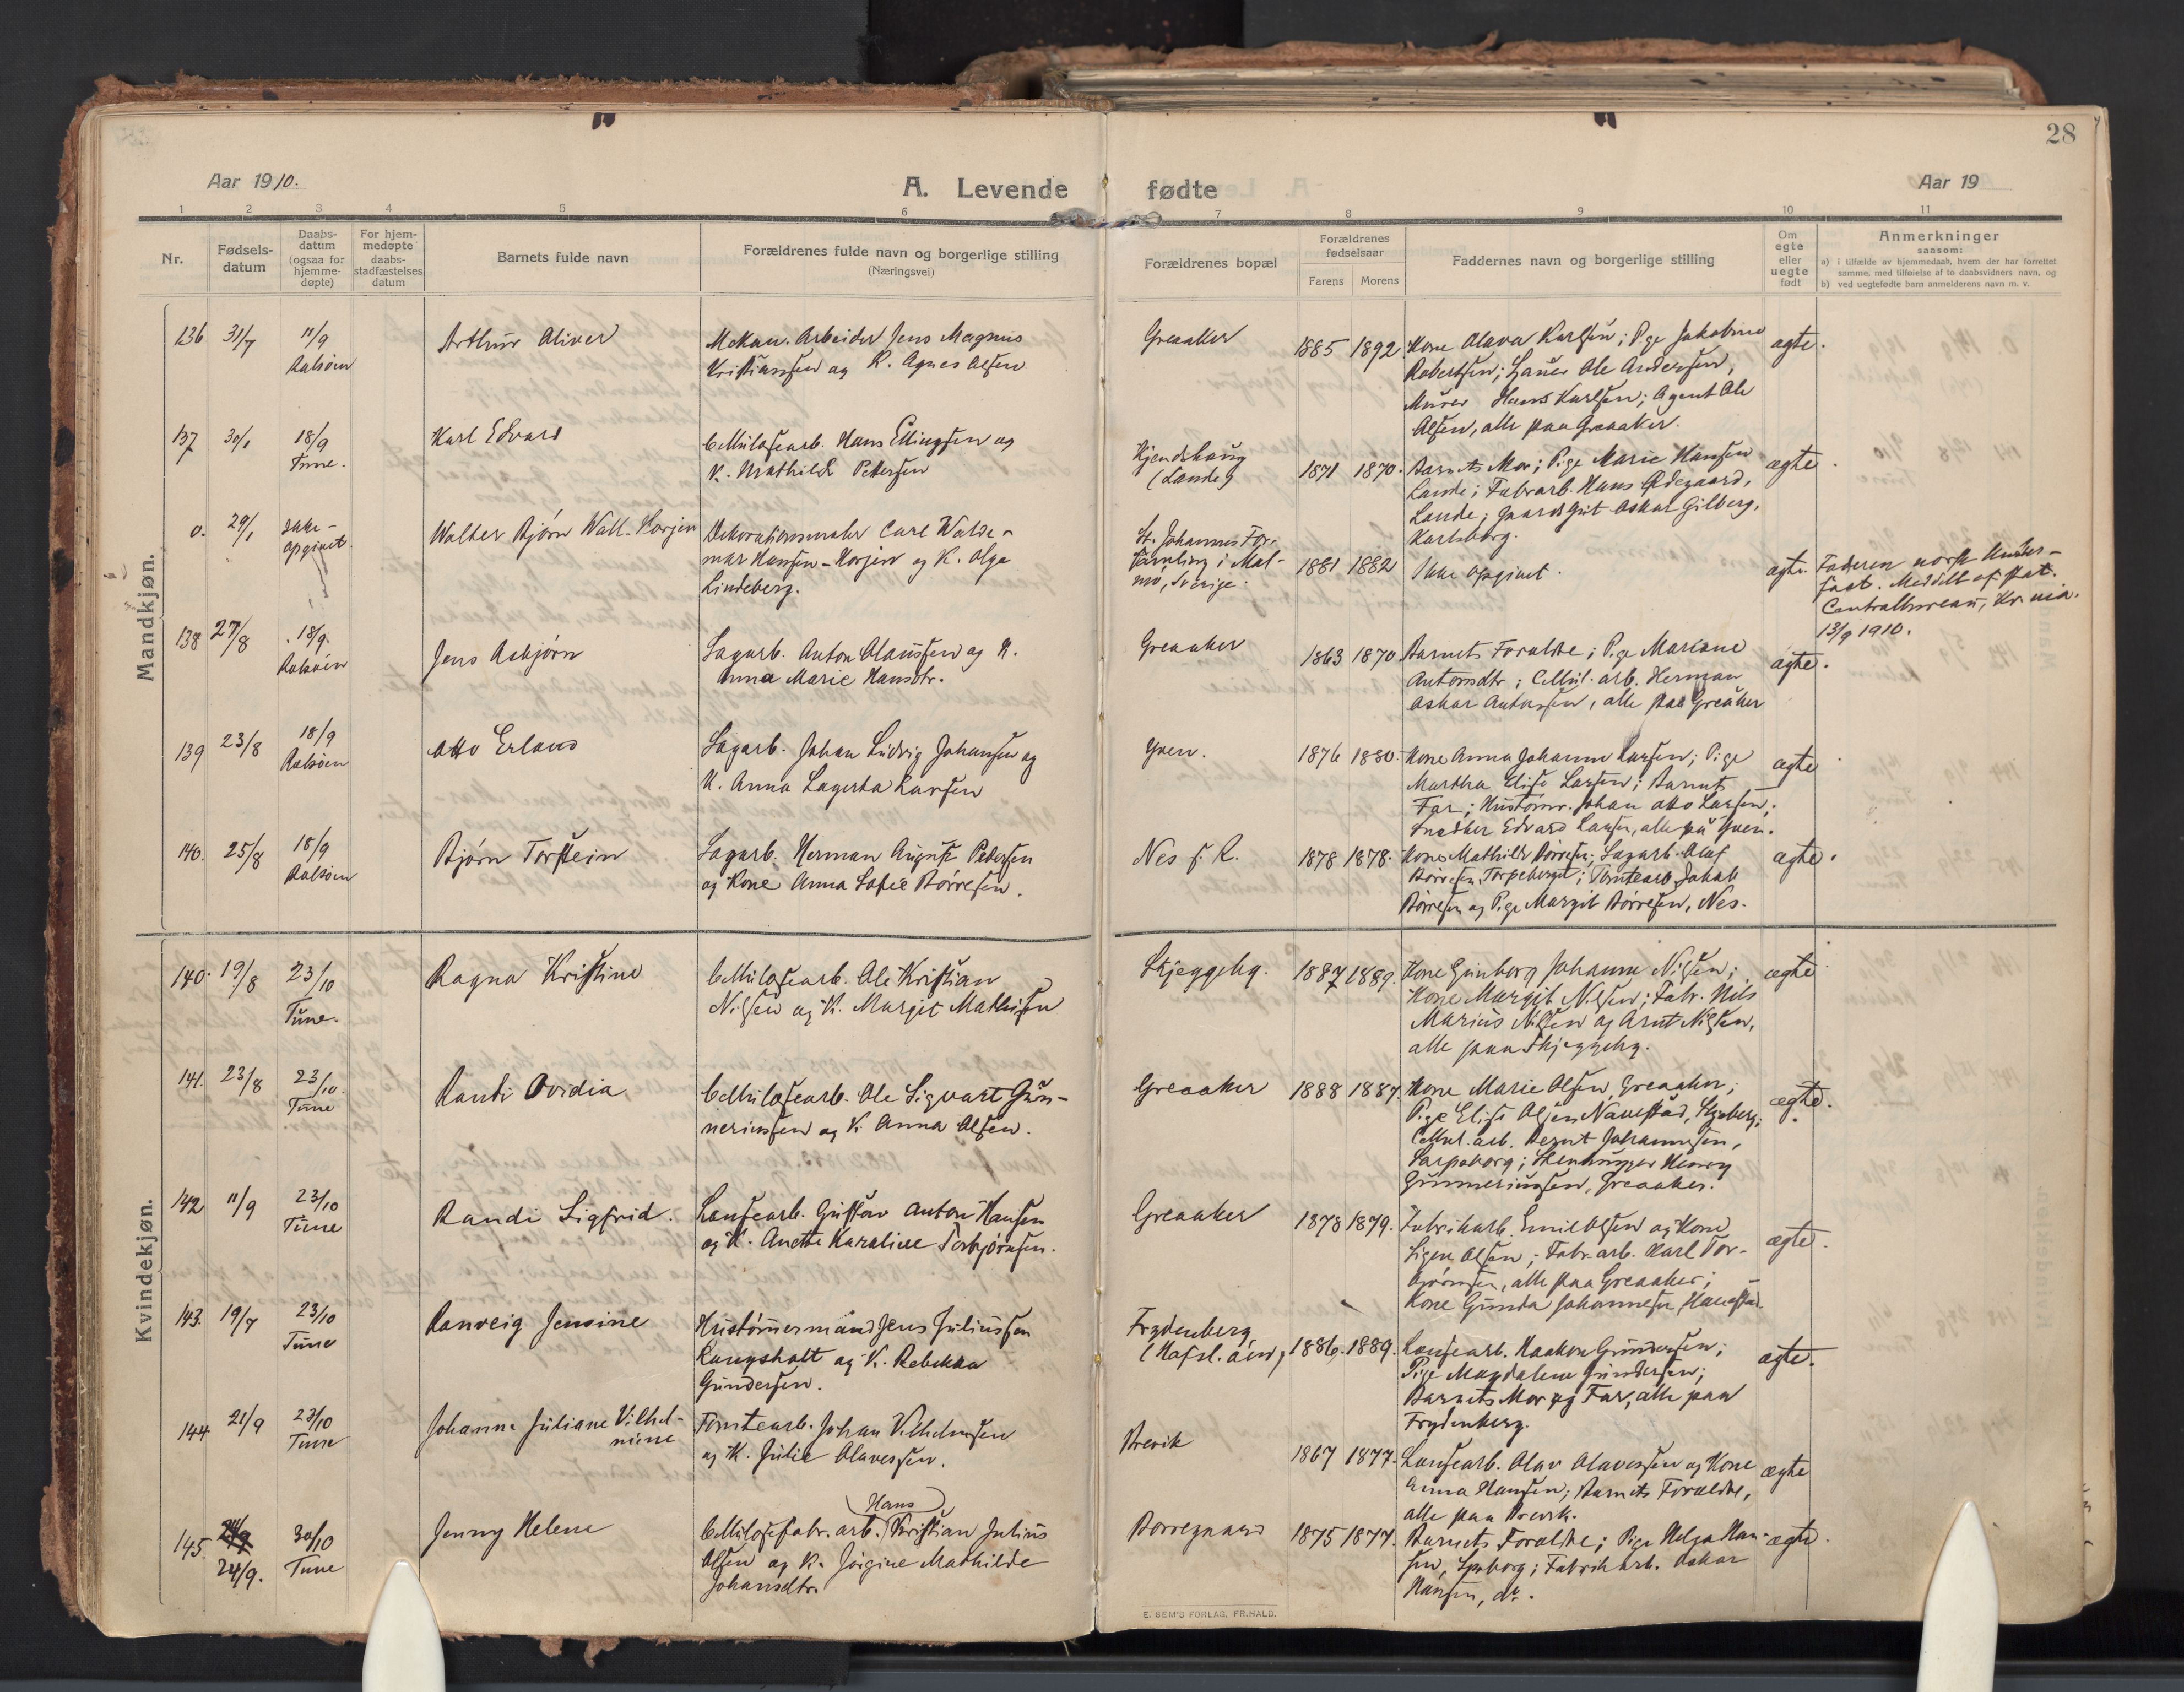 28
Aar 1910.
A. Levende fødte
Aar 19
1 2 3 4 5 6 7 8 9 10 11
Nr.
Fødsels-
datum
Daabs-
datum
(ogsaa for
hjemme-
døpte)
For hjem-
medøpte
daabs-
stadfæstelses
datum
Barnets fulde navn
Forældrenes fulde navn og borgerlige stilling
(Næringsvei)
Forældrenes bopæl
Forældrenes
fødselsaar
Farens Morens
Faddernes navn og borgerlige stilling
Om
egte
eller
uegte
født
Anmerkninger
saasom:
a) i tilfælde av hjemmedaab, hvem der har forrettet
samme, med tilføielse af to daabsvidners navn, og
b) ved uegtefødte barn anmelderens navn m. v.
Mandkjøn.
136 31/7 11/9
Rolvsøen
Arthur Oliver
Mekan. Arbeider Jens Magnus
Kristianssen og K. Agnes Olsen
Greaaker
1885 1892.
Kone Olava Karlsen; Pige Jakobine
Robertsen; Ole Andersen,
Murer Hans Karlsen; Agent Ole
Olsen, alle paa Greaaker.
ægte.
137 30/1 18/9
Tune.
Karl Edvard
Cellulosearb. Hans Ellingsen og
K. Mathilde Petersen
(Lande)
1871 1870.
Barnets Mor; Pige Marie Hansen
Lande; Fabr.arb. Hans Ødegaard,
Lande; Gaardgut Oskar Gilberg,
Karlsborg.
ægte.
0. 29/1 Ikke
opgivet.
Walter Bjørn Wall-Horgen
Dekorationsmaler Carl Walde-
mar Hansen-Horgen og K. Olga
Lindeberg.
St. Johannes For-
samling i Mal-
mø, Sverige.
1881 1882
Ikke opgivet.
ægte.
Faderen norsk Under-
saat. Meddelt af Stat.
Centralbureau, Kr.nia.
13/9 1910.
138 27/8 18/9.
Rolvsøen
Jens Asbjørn
Sagarb. Anton Olaussen og K.
Anna Marie Hansdtr.
Greaaker
1863 1870
Barnets Forældre; Pige Mariane
Antonsdtr; Cellul. arb. Herman
Oskar Antonsen, alle paa Greaaker
ægte.
139 23/8 18/9
Rolvsøen
Otto Erland
Sagarb. Johan Ludvig Johansen og
K. Anna Lagerta Larsen
Yven.
1876 1880.
Kone Anna Johanne Larsen; Pige
Martha Elise Larsen; Barnets
Far; Hustømr. Johan Otto Larsen;
Snedker Edvard Larsen, alle på Yven.
ægte
140. 25/8 18/9
Rolvsøen
Bjørn Torstein
Sagarb. Herman August Petersen
og Kone Anna Sofie Børresen.
Nes f. R.
1878 1878.
Kone Mathilde Børresen; Sagarb. Olaf
Børresen, Torpeberget; Tomtearb. Jakob
Børresen og Pige Margit Børresen, Nes.
ægte.
Kvindekjøn.
140. 19/8 23/10
Tune.
Ragna Kristine
Cellulosearb. Ole Kristian
Nilsen og K. Margit Mathisen
Skjeggeby.
1887 1889.
Kone Gunborg Johanne Nilsen;
Kone Margit Nilsen; Fabr. Nils
Marius Nilsen og Arnt Nilsen,
alle paa Skjeggeby.
ægte
141. 23/8 23/10.
Tune
Randi Ovidia
Cellulosearb. Ole Sigvart Gun-
neriussen og K. Anna Olsen.
Greaaker
1888 1887.
Kone Marie Olsen, Greaaker;
Pige Elise Olsen Navestad, Skjeberg;
Cellul. arb. Bernt Johannesen,
Sarpsborg; Stenhugger Henry
Gunneriussen, Greaaker.
ægte.
142 11/9 23/10
Tune
Randi Sigfrid.
Lousearb. Gustav Anton Hansen
og K. Anette Karoline Torbjørnsen.
Greaaker
1878 1879.
Fabrikarb. Emil Olsen og Kone
Signe Olsen; Fabr.arb. Karl Tor-
bjørnsen, alle paa Greaaker;
Kone Gunda Johannesen,
ægte.
143. 19/7 23/10
Tune
Ranveig Jensine
Hustømmermand Jens Juliussen
Langsholt og K. Rebekka
Gundersen.
Frydenberg
(Hafsl. )
1886. 1889.
Lousearb. Haakon Gundersen;
Pige Magdalene Gundersen;
Barnets Mor og Far, alle paa
Frydenberg.
ægte.
144 21/9 23/10
Tune
Johanne Juliane Vilhel-
mine
Tomtearb. Johan Vilhelmsen
og K. Julie Olavessen.
Brevik
1867 1877.
Lousearb. Olav Olavessen og Kone
Anna Hansen; Barnets Forældre,
alle paa Brevik.
ægte
145. 24/9. 30/10
Tune
Jenny Helene
Cellulosefabr. arb. (Hans) Kristian Julius
Olsen og K. Jørgine Mathilde
Johansdtr.
Borregaard
1875 1877.
Barnets Forældre; Pige Helga Han-
sen, Spsborg; Fabrikarb. Oskar
Hansen, do.
ægte.
E. SEM'S FORLAG, FR.HALD.